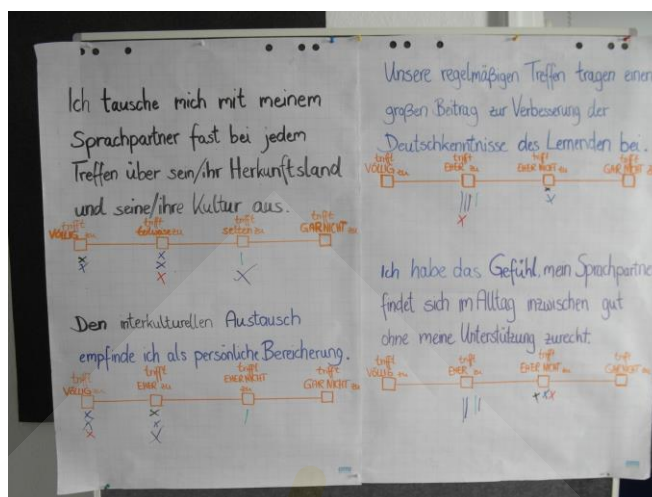 Ich tausche mich mit meinem
Sprachpartner fast bei jedem
Treffen über sein/ihr Herkunftsland
und seine/ihre Kultur aus.
trifft VÖLLIG zu
trifft teilweise zu
trifft selten zu
trifft GAR NICHT zu
Den interkulturellen Austausch
empfinde ich als persönliche Bereicherung.
trifft VÖLLIG zu
trifft EHER zu
trifft EHER NICHT zu
trifft GAR NICHT zu
Unsere regelmäßigen Treffen tragen einen
großen Beitrag zur Verbesserung der
Deutschkenntnisse des Lernenden bei.
trifft VÖLLIG zu
trifft EHER zu
trifft EHER NICHT zu
trifft GAR NICHT z
Ich habe das Gefühl, mein Sprachpartne
findet sich im Alltag inzwischen gut
ohne meine Unterstützung zurecht.
trifft VÖLLIG zu
trifft EHER zu
trifft EHER NICHT zu
trifft GAR NICHT zu